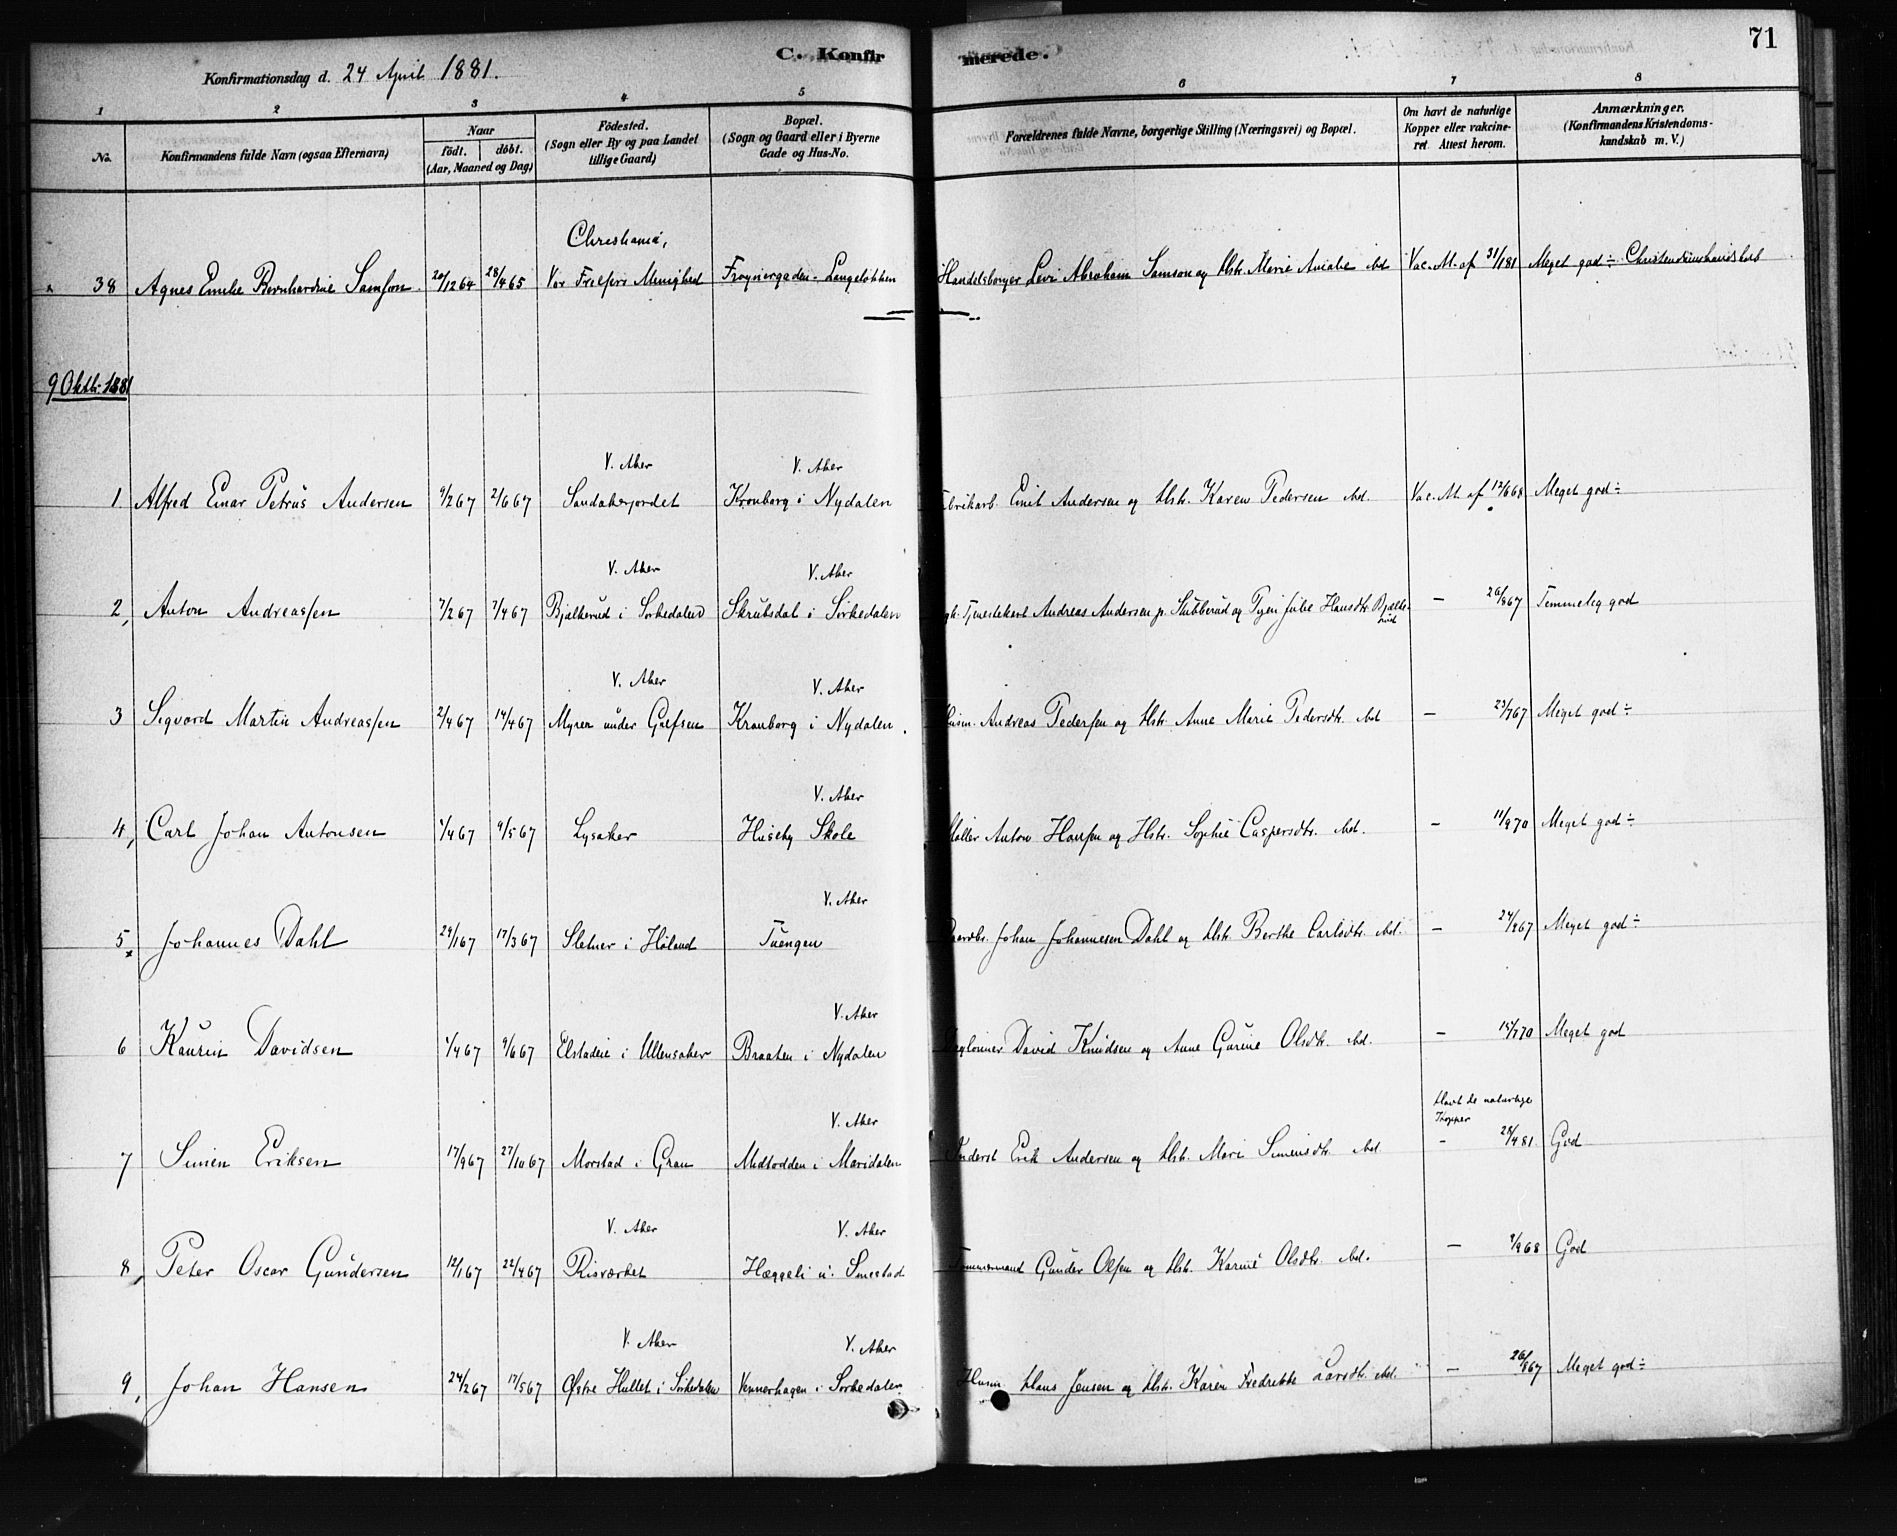 71
C. Konfirmerede.
Konfirmationsdag d. 24 April 1881.
1 2 3 4 5 6 7 8
No.
Konfirmandens fulde Navn (ogsaa Efternavn)
Naar
födt. döbt.
(Aar, Maaned og Dag)
Födested.
(Sogn eller By og paa Landet
tillige Gaard)
Bopæl.
(Sogn og Gaard eller i Byerne
Gade og Hus-No.
Forældrenes fulde Navne, borgerlige Stilling (Næringsvei) og Bopæl.
Om havt de naturlige
Kopper eller vakcine-
ret. Attest herom.
Anmærkninger.
(Konfirmandens Kristendoms-
kundskab m. V.)
Christiania,
38 Agnes Emilie Bernhardine Samson 20/12 64 28/4 65 Vor Frelsers Menighed Frognergaden - Langeløkken Handelsborger Levi Abraham Samson og Hstr. Marie Amalie Vac. At. af 31/1 81 Meget god ÷ Christendomskundskab
9 Oktb. 1881
V. Aker V. Aker
1 Alfred Einar Petrus Andersen 9/2 67 2/6 67 Sandakerjordet Kronborg i Nydalen Emil Andersen og Hstr. Karen Pedersen Vac. At. af 12/6 68 Meget god ÷
V. Aker V. Aker
2, Anton Andreassen 7/2 67 7/4 67 Bjælkerud i Sørkedalen Skrubsdal i Sørkedalen Tjenestekarl Andreas Andersen p. Stubberud og Pige Hansdtr. Bjælke-
rud — 26/8 67 Temmelig god
V. Aker V. Aker
3 Sigvard Martin Andreassen 2/4 67 14/4 67 Myrer under Grefsen Kronborg i Nydalen Husm. Andreas Pedersen og Hstr. Anne Marie Pedersdtr. — 23/7 67 Meget god ÷
V. Aker
4, Carl Johan Antonsen 1/4 67 9/5 67 Lysaker Huseby Skole Møller Anton Hansen og Hstr. Sophie Caspersdtr. — 11/9 70 Meget god ÷
V. Aker
5 Johannes Dahl 24/1 67 17/3 67 Sletner i Høland Tuengen Gaardbr. Johan Johannesen Dahl og Hstr. Berthe Carlsdtr. — 24/9 67 Meget god ÷
V. Aker
6 Kaurin Davidsen 1/4 67 9/6 67 Elstadeie i Ullensaker Braaten i Nydalen Daglønner David Knudsen og Anne Gurine Olsdtr. — 15/7 70 Meget god
V. Aker Havt de naturlige
Kopper
7 Simen Eriksen 17/9 67 27/10 67 Morstad i Gran Midtodden i Maridalen Inderst Erik Andersen og Hstr. Mari Simensdtr. — 28/4 81 God
V. Aker V. Aker
8, Peter Oscar Gundersen 12/1 67 22/4 67 Risværket Hæggeli u. Smestad Tømmermand Gunder Olsen og Hstr. Karine Olsdtr. — 9/9 68 God
V. Aker V. Aker
9, Johan Hansen 24/2 67 19/5 67 Østre Hullet i Sørkedalen Vennerhagen i Sørkedalen Husm. Hans Jensen og Hstr. Karen Fredrikke Larsdtr. — 26/8 67 Meget god ÷